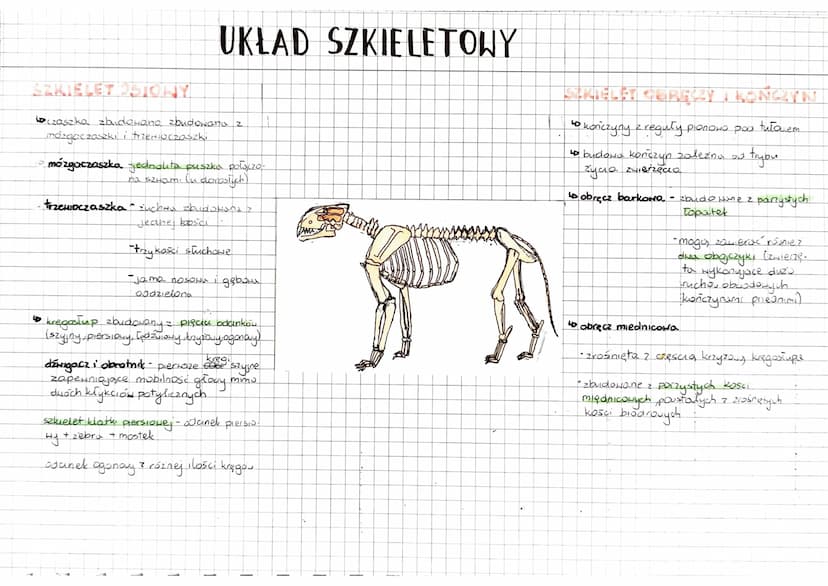 UKŁAD SZKIELETOWY
SZKIELET OSIOWY
czaszka zbudowana zbudowana z
mózgoczaszki i trzewioczaszki
mózgoczaszka jednolita puszka połączo-
na szwami (u dorosłych)
trzewioczaszka - żuchwa zbudowana z
jednej kości
- trzy kości słuchowe
- jama nosowa i gębowa
oddzielona
kręgosłup zbudowany z pięciu odcinków
(szyjny, piersiowy, lędźwiowy, krzyżowy, ogonowy)
dźwigacz i obrotnik - pierwsze kręgi szyjne
zapewniające mobilność głowy mimo
dwóch kłykciów potylicznych
szkielet klatki piersiowej - odcinek piersio-
wy + żebra + mostek
odcinek ogonowy z różnej ilości kręgów
SZKIELET OBRĘCZY I KOŃCZYN
kończyny z reguły pionowo pod tułowiem
budowa kończyn zależna od trybu
życia zwierzęcia
obręcz barkowa - zbudowane z parzystych
łopatek
- mogą zawierać również
dwa obojczyki (zwierzę-
ta wykonujące dużo
ruchów obwodowych
kończynami przednimi)
obręcz miednicowa
- zrośnięta z częścią krzyżową kręgosłupa
- zbudowane z parzystych kości
miednicowych, powstałych z zrośniętych
kości biodrowych